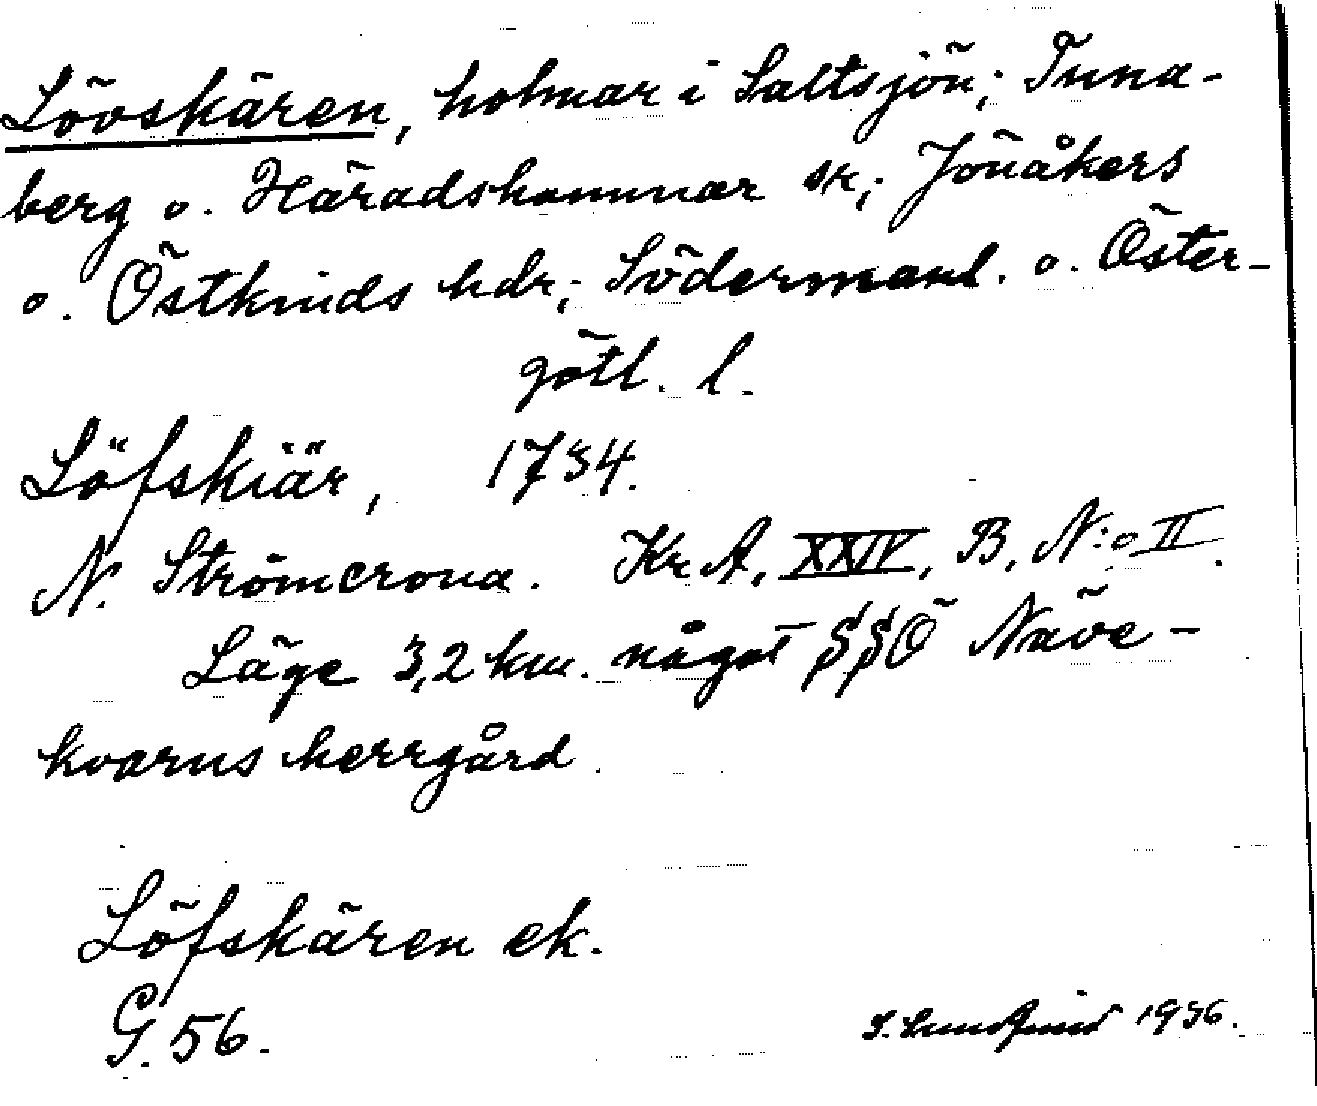 Lövskären, holmar i Saltsjön; Tuna-
berg o. Häradshammar sk; Jönåkers
o. Östkinds hdr; Södermanl. o. Öster-
götl. l.
Löfskiär, 1734.
N. Strömcrona. Kr. A, XXIV, B, N:o II.
Läge 3,2 km. något SSÖ Näve-
kvarns herrgård.
Löfskären ek.
G. 56.
1936.